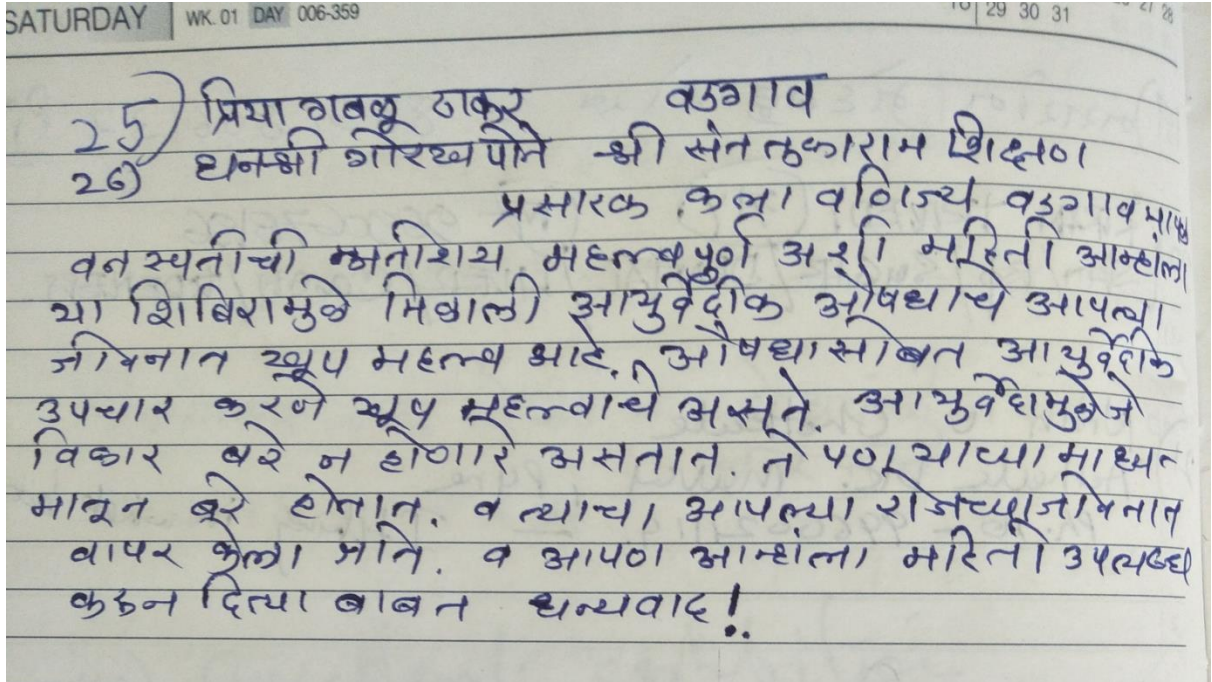 SATURDAY WK. 01 DAY 006-359 29 30 31 27 28
25) प्रिया गबळू ठाकूर वडगाव
26) धनश्री गोरख पोते श्री संत तुकाराम शिक्षण
प्रसारक कला वाणिज्य वडगाव
वनस्पतीची अतीशय महत्वपुर्ण अशी महिती आम्हाला
या शिबिरामुळे मिळाली आयुर्वेदीक औषधाचे आपल्या
जीवनात खूप महत्व आहे. औषधासोबत आयुर्वेदीक
उपचार करणे खूप महत्वाचे असते. आयुर्वेदामुळे जे
विकार बरे न होणारे असतात. ते पण याच्या माध्य
मातून बरे होतात. व त्याचा आपल्या रोजच्या जीवनात
वापर केला जातो. व आपण आम्हांला महिती उपलब्ध
करून दिल्या बाबत धन्यवाद!